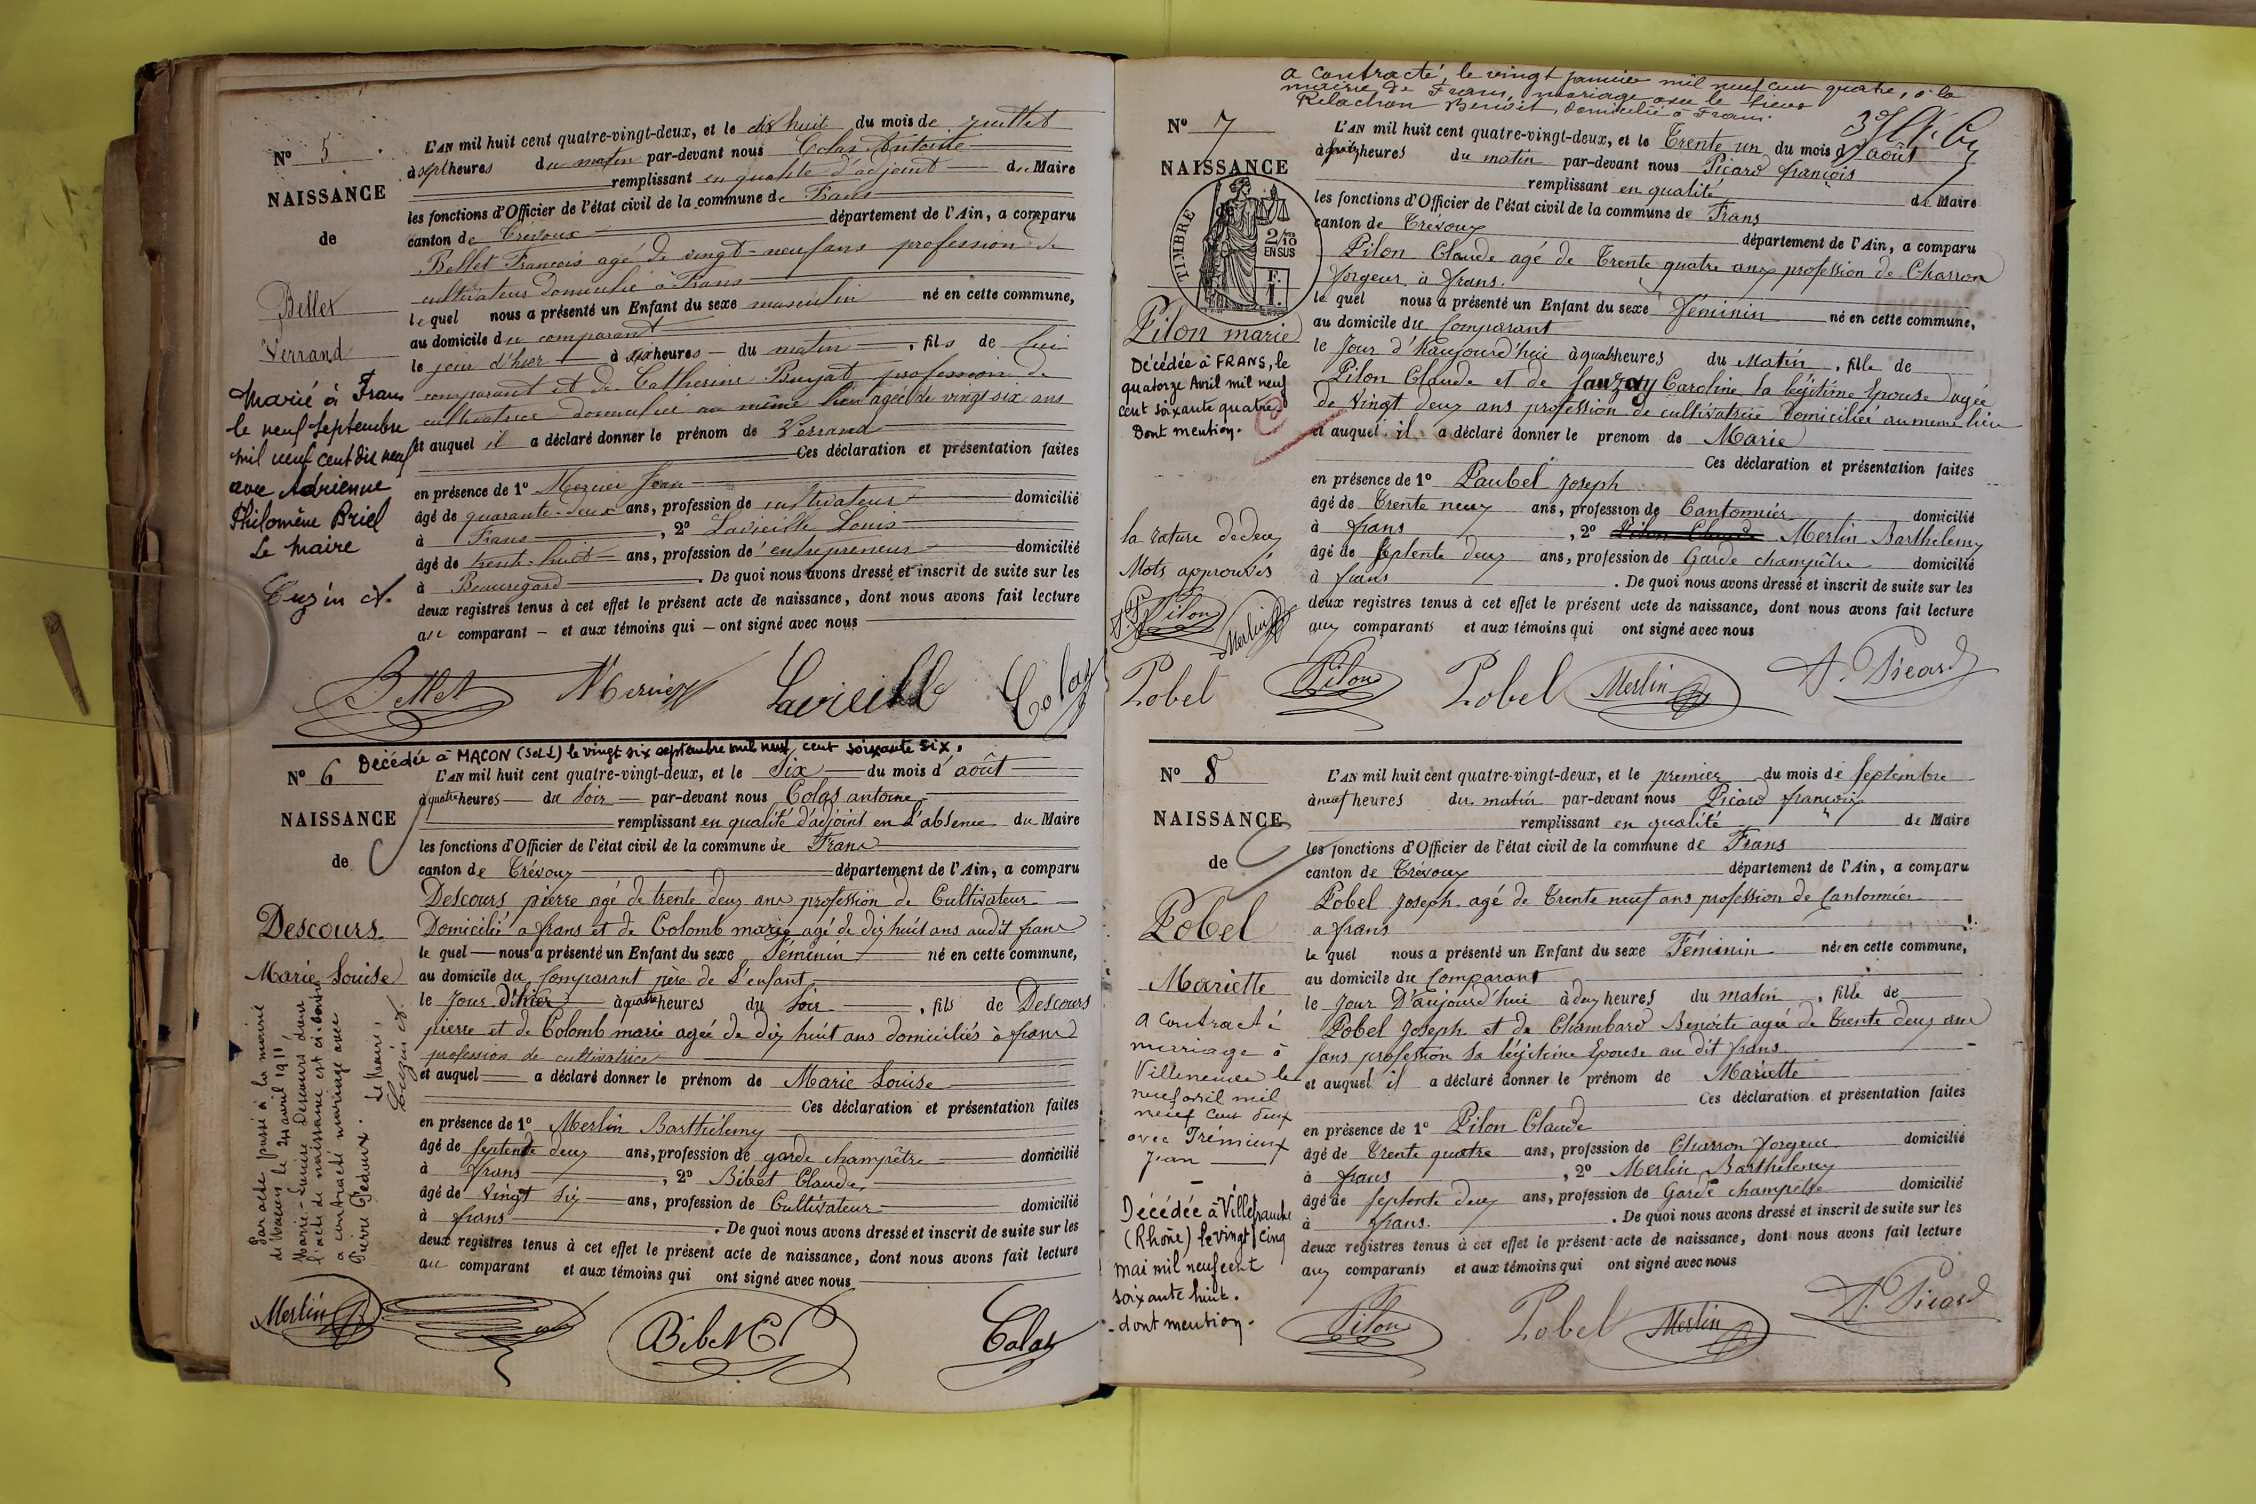 N° 5
NAISSANCE
de
Bellet
Verrand
Marié à Frans
le neuf septembre
mil neuf cent dix neuf
avec Adrienne
Philomène Briel
Le Maire
Cuzin A.
L'AN mil huit cent quatre-vingt-deux, et le dix huit du mois de juillet
à sept heures du matin par-devant nous Colas Antoine
remplissant en qualité d'adjoint du Maire
les fonctions d'Officier de l'état civil de la commune de Frans
canton de Trévoux département de l'Ain, a comparu
Bellet François agé de vingt-neuf ans profession de
cultivateur domicilié à Frans
lequel nous a présenté un Enfant du sexe masculin né en cette commune,
au domicile du comparant
le jour d'hier à six heures du matin, fils de lui
comparant et de Catherine Buyat profession de
cultivatrice domiciliée au même lieu agée de vingt six ans
et auquel il a déclaré donner le prénom de Verrand
Ces déclaration et présentation faites
en présence de 1° Mercier Jean
âgé de quarante-deux ans, profession de cultivateur domicilié
à Frans, 2° Lavieille Louis
âgé de trente-huit ans, profession de entrepreneur domicilié
à Beauregard. De quoi nous avons dressé et inscrit de suite sur les
deux registres tenus à cet effet le présent acte de naissance, dont nous avons fait lecture
au comparant et aux témoins qui ont signé avec nous
Bellet Mercier Lavieille Colas
Décédée à MACON (S et L) le vingt six septembre mil neuf cent soixante six.
N° 6
NAISSANCE
de
Descours
Marie Louise
Par acte passé à la mairie
le 24 avril 1911,
Marie-Louise Descours dont
l'acte de naissance est ci-contre
a contracté mariage avec
Pierre Geoffray.
Le Maire,
Cuzin A.
L'AN mil huit cent quatre-vingt-deux, et le Six du mois d'août
à quatre heures du soir par-devant nous Colas antoine
remplissant en qualité d'adjoint en L'absence du Maire
les fonctions d'Officier de l'état civil de la commune de Frans
canton de Trévoux département de l'Ain, a comparu
Descours pierre agé de trente deux ans profession de Cultivateur
Domicilié a frans et de Colomb marie agé de dix huit ans audit frans
le quel nous a présenté un Enfant du sexe Féminin né en cette commune,
au domicile du Comparant père de L'enfant
le Jour d'hier à quatre heures du soir, fils de Descours
pierre et de Colomb marie agée de dix huit ans domiciliés à frans
profession de cultivatrice
et auquel a déclaré donner le prénom de Marie Louise
Ces déclaration et présentation faites
en présence de 1° Merlin Barthélemy
âgé de septente deux ans, profession de garde champêtre domicilié
à frans, 2° Bibet Claude
âgé de Vingt Six ans, profession de Cultivateur domicilié
à frans. De quoi nous avons dressé et inscrit de suite sur les
deux registres tenus à cet effet le présent acte de naissance, dont nous avons fait lecture
au comparant et aux témoins qui ont signé avec nous
Merlin Bibet C Colas
a contracté, le vingt janvier mil neuf cent quatre, à la
mairie de Frans, mariage avec le sieur
Relachon Benoit, domicilié à Frans.
N° 7
NAISSANCE
de
TIMBRE
2/10
EN SUS
F. I.
Pilon marie
Décédée à FRANS, le
quatorze Avril mil neuf
cent soixante quatre
Dont mention.
la rature de deux
Mots approuvés
Pilon Merlin
Pobel
L'AN mil huit cent quatre-vingt-deux, et le Trente un du mois d'août
à heures du matin par-devant nous Picard françois
remplissant en qualité de Maire
les fonctions d'Officier de l'état civil de la commune de Frans
canton de Trévoux département de l'Ain, a comparu
Pilon Claude agé de Trente quatre ans profession de Charron
forgeur à frans.
le quel nous a présenté un Enfant du sexe Féminin né en cette commune,
au domicile du Comparant
le Jour d'haujourd'hui à quatre heures du Matin, fille de
Pilon Claude et de Fauzay Caroline la légitime Epouse agée
de Vingt deux ans profession de cultivatrice Domiciliée au meme lieu
et auquel il a déclaré donner le prenom de Marie
Ces déclaration et présentation faites
en présence de 1° Paubel Joseph
âgé de Trente neuf ans, profession de Cantonnier domicilié
à frans, 2° Pilon Claude Merlin Barthelemy
âgé de septente deux ans, profession de Garde champêtre domicilié
à frans. De quoi nous avons dressé et inscrit de suite sur les
deux registres tenus à cet effet le présent acte de naissance, dont nous avons fait lecture
aux comparants et aux témoins qui ont signé avec nous
Pilon Pobel Merlin F. Picard
N° 8
NAISSANCE
de
Pobel
Mariette
a contracté
mariage à
Villeneuve le
neuf avril mil
neuf cent deux
avec Trémieux
Jean
Décédée à Villefranche
(Rhône) le vingt cinq
mai mil neuf cent
soixante huit.
dont mention.
L'AN mil huit cent quatre-vingt-deux, et le premier du mois de septembre
à neuf heures du matin par-devant nous Picard françois
remplissant en qualité de Maire
les fonctions d'Officier de l'état civil de la commune de Frans
canton de Trévoux département de l'Ain, a comparu
Pobel Joseph agé de Trente neuf ans profession de Cantonnier
a frans
le quel nous a présenté un Enfant du sexe Féminin né en cette commune,
au domicile du Comparant
le Jour D'aujourd'hui à deux heures du matin, fille de
Pobel Joseph et de Chambard Benoite agée de Trente deux ans
sans profession Sa légitime Epouse au dit frans
et auquel il a déclaré donner le prénom de Mariette
Ces déclaration et présentation faites
en présence de 1° Pilon Claude
âgé de Trente quatre ans, profession de Charron forgeur domicilié
à frans, 2° Merlin Barthélemy
âgé de septente deux ans, profession de Garde champêtre domicilié
à frans. De quoi nous avons dressé et inscrit de suite sur les
deux registres tenus à cet effet le présent acte de naissance, dont nous avons fait lecture
aux comparants et aux témoins qui ont signé avec nous
Pilon Pobel Merlin F. Picard